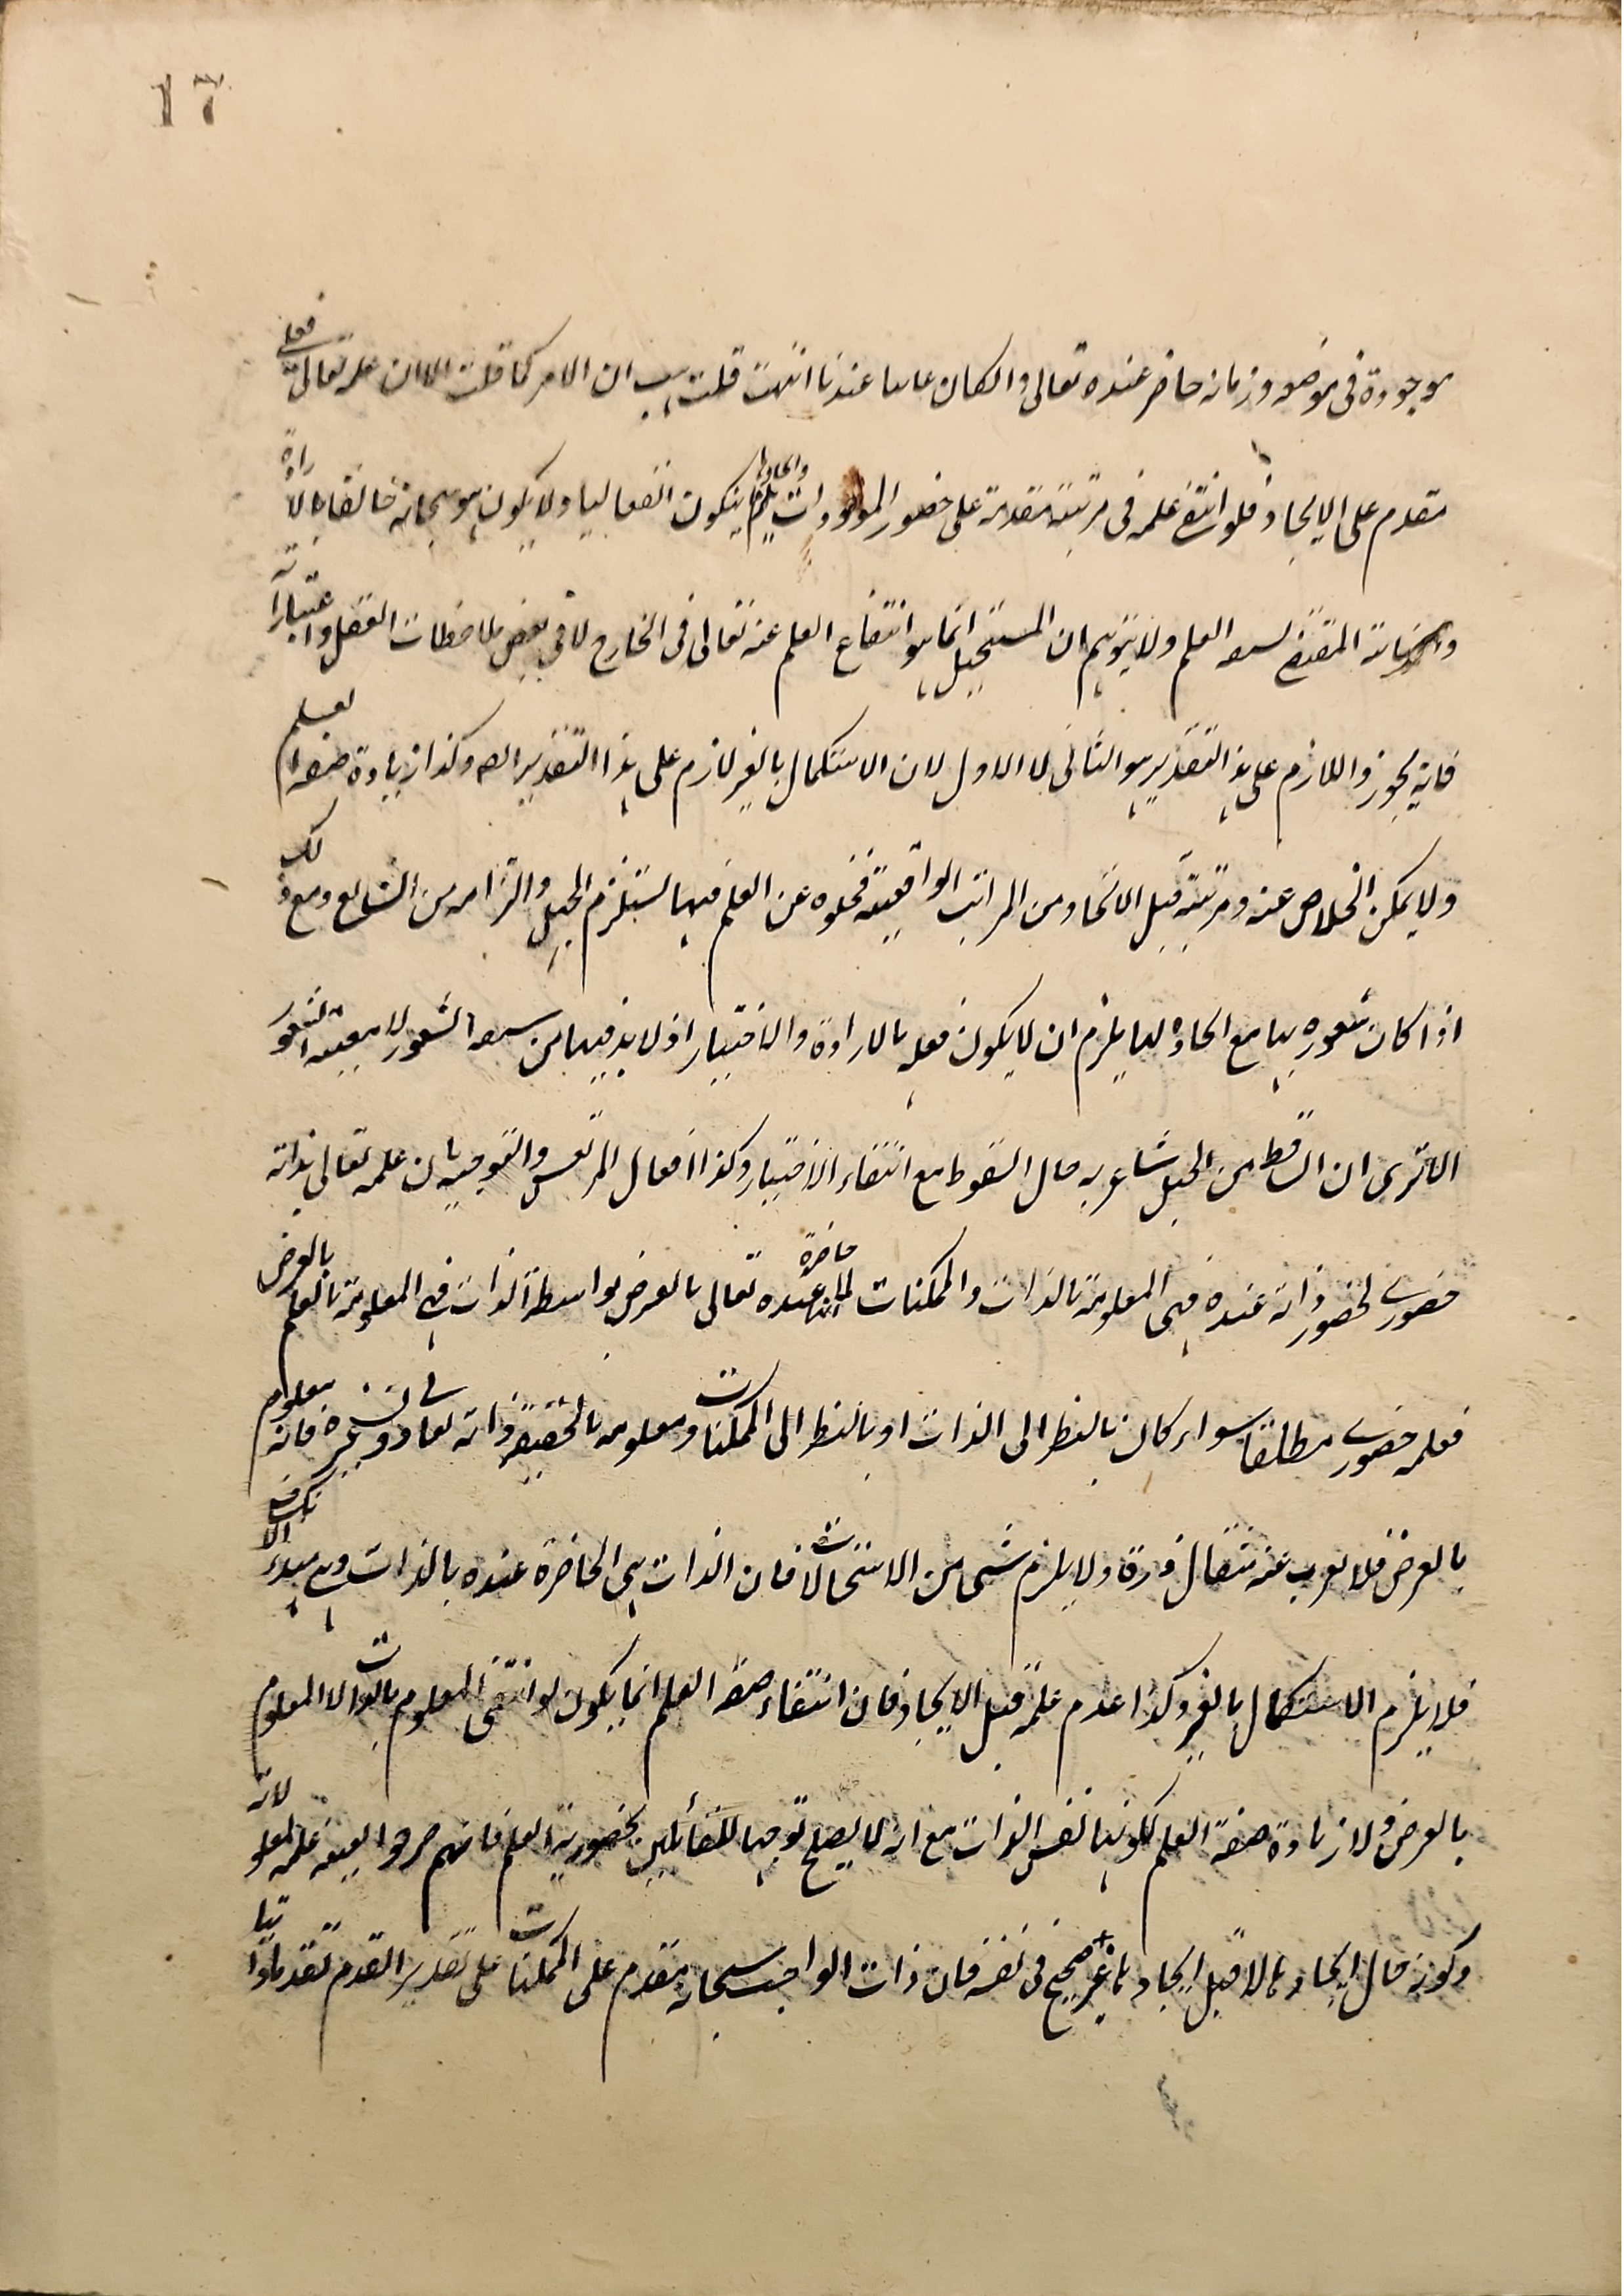 17
موجودة فى موضعه وزمانه حاضر عنده تعالى وان كان غائبا عندنا انتهت قلت هب ان الامر كما قلت الا ان علمه تعالى فعلى
متقدم على الايجاد فلو انتفى علمه فى مرتبة متقدمة على حضور الموجودات وايجادها يلزم ان يكون انفعاليا ولا يكون هو سبحانه خالقا بالارادة
المقتضى لسبق العلم ولا يتوهم ان المستحيل انما هو انتفاع العلم عنه تعالى فى الخارج لا فى بعض ملاحظات العقل واعتباراته
فانه يجوز واللازم على هذا التقدير هو الثانى لا الاول لان الاستكمال بالغير لازم على هذا التقدير ايضا وكذا زيادة صفة العلم
ولا يمكن الخلاص عنه ومرتبة قبل الايجاد من المراتب الواقعية فخلوه عن العلم فيها يستلزم الجهل والتزامه من الشنائع ومع ذلك
اذا كان شعوره بها مع ايجاده لها يلزم ان لا يكون فعله بالارادة والاختيار اذ لا بد فيهما من سبق الشعور لا معية الشعور
الا ترى ان الساقط من الجبل شاعر به حال السقوط مع انتفاء الاختيار وكذا افعال المرتعش والتوجيه بان علمه تعالى بذاته
حضورى لحضور ذاته عنده فهى المعلومة بالذات والممكنات لما انها حاضرة عنده تعالى بالعرض بواسطة الذات فهى المعلومة بالعلم بالعرض
فعلمه حضورى مطلقا سواء كان بالنظر الى الذات او بالنظر الى الممكنات ومعلومه بالحقيقة ذاته تعالى وغيره فانه معلوم
بالعرض فلا يعزب عنه مثقال ذرة ولا يلزم شئ من الاستحالات فان الذات هى الحاضرة عنده بالذات وهى مبدء الانكشاف
فلا يلزم الاستكمال بالغير وكذا عدم علمه قبل الايجاد فان انتفاء صفة العلم انما يكون لو انتفى المعلوم بالذات لا المعلوم
بالعرض ولا زيادة صفة العلم لكونها نفس الذات مع انه لا يصلح توجيها للقائلين بحضورية العلم فانهم صرحوا بمعية علمه لمعلولاته
وكونه حال ايجادها لا قبل ايجادها غير صحيح فى نفسه فان ذات الواجب سبحانه متقدم على الممكنات على تقدير القدم تقدما ذاتيا